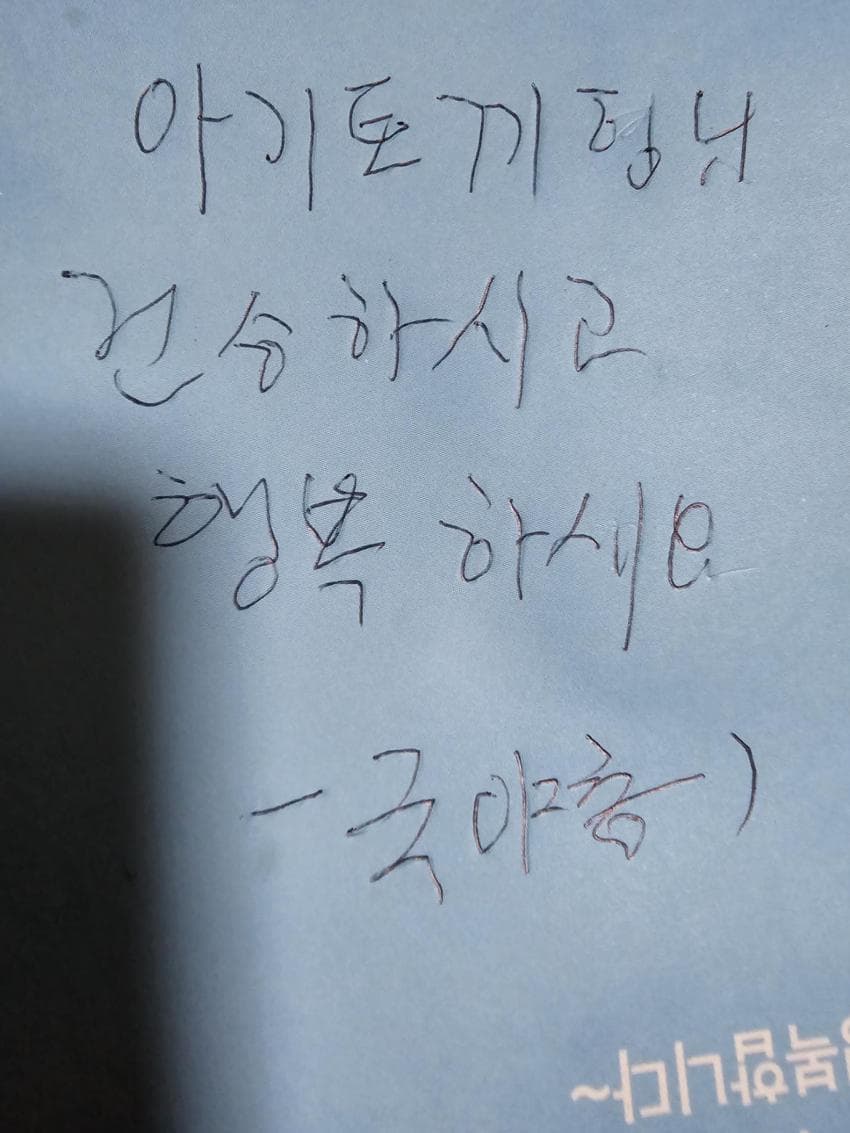 아기토끼형님
건승하시고
행복 하세요